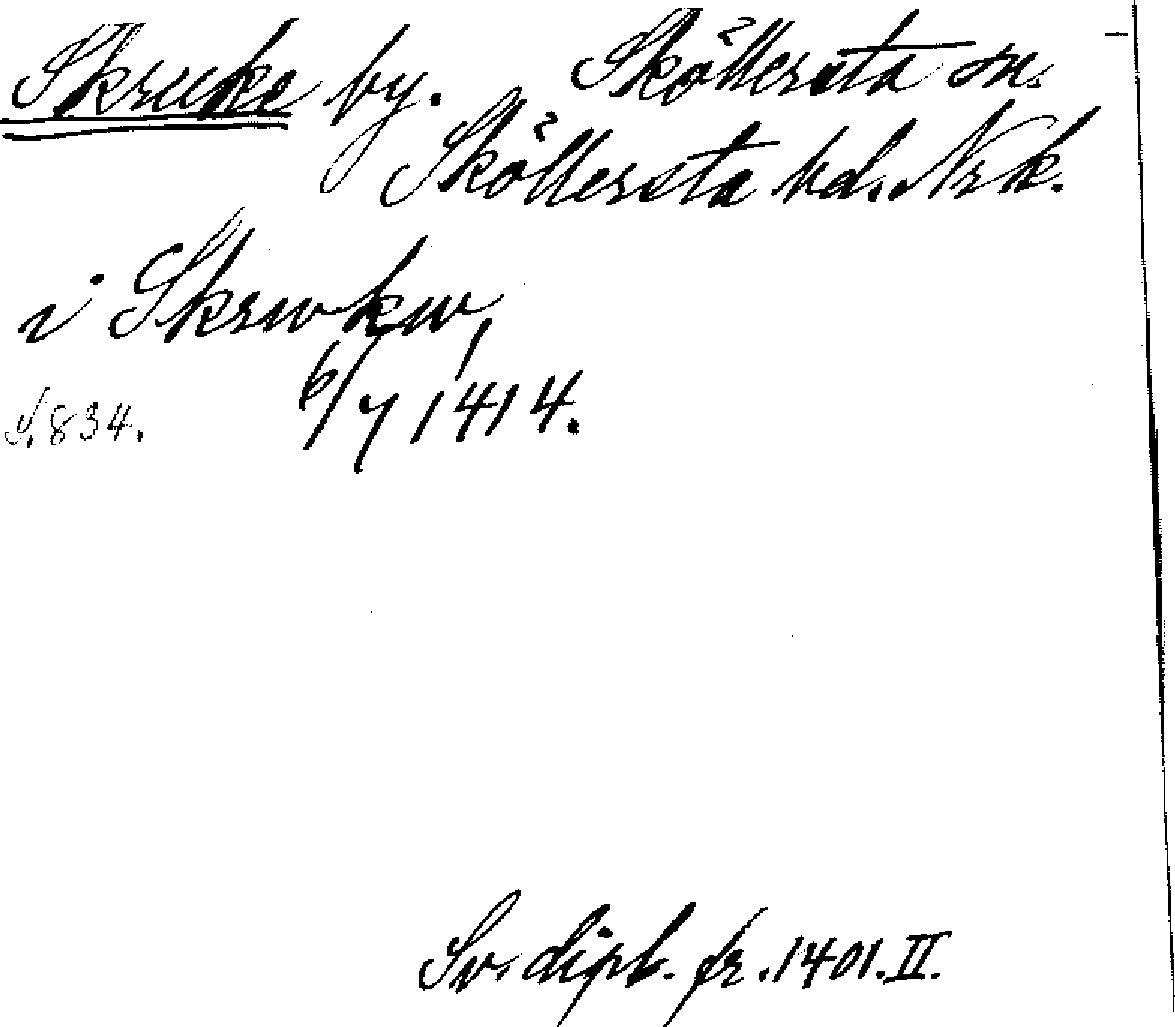 Skruke by. Sköllersta sn.
Sköllersta hd. Nrk.
i Skrwkw,
6/7 1414.
S. 834.
Sv. dipl. fr. 1401. II.